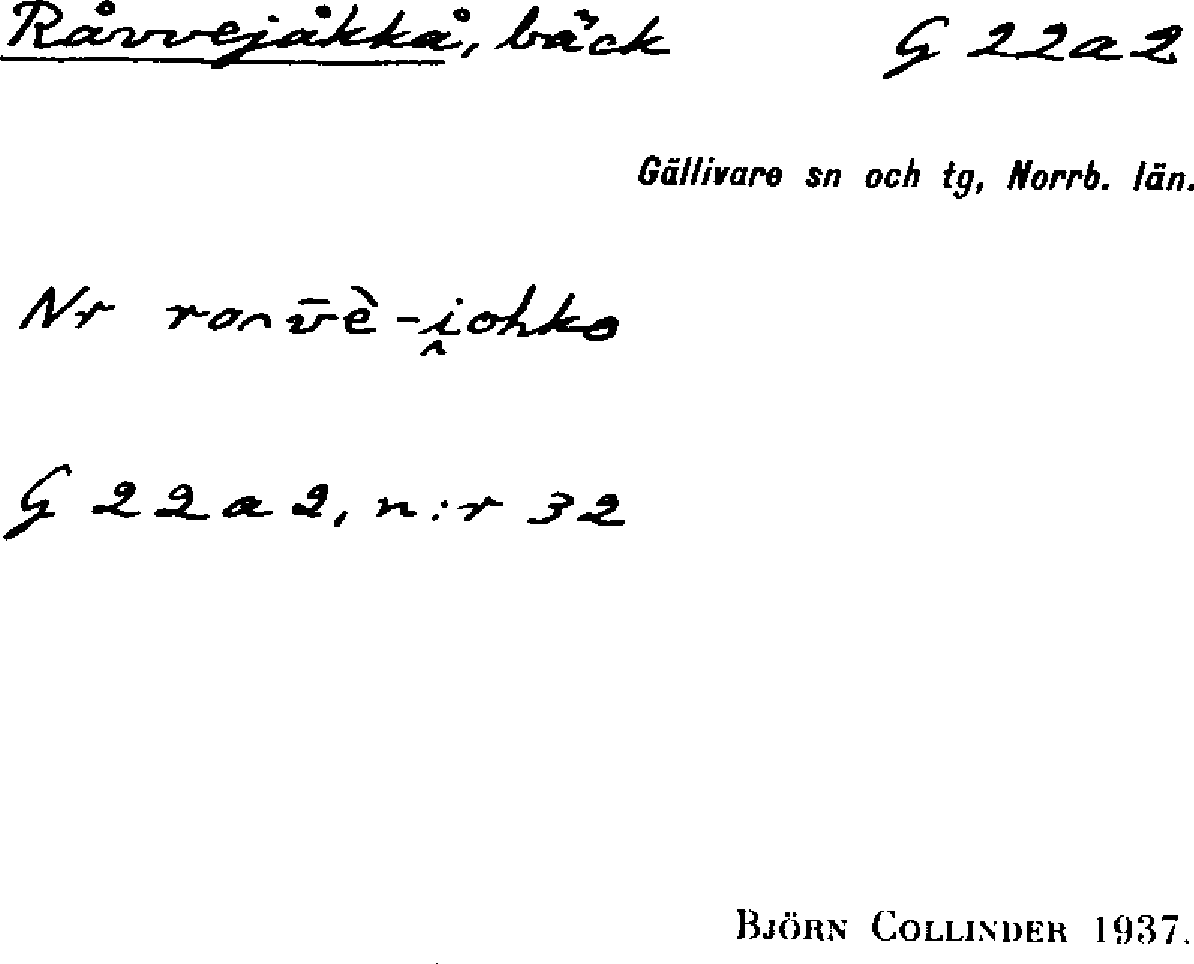 Råvvejåkkå, bäck G 22a2
Gällivare sn och tg, Norrb. län.
Nr roꞈv̄è-i̭ohko
G 22a2, n:r 32
BJÖRN COLLINDER 1937.